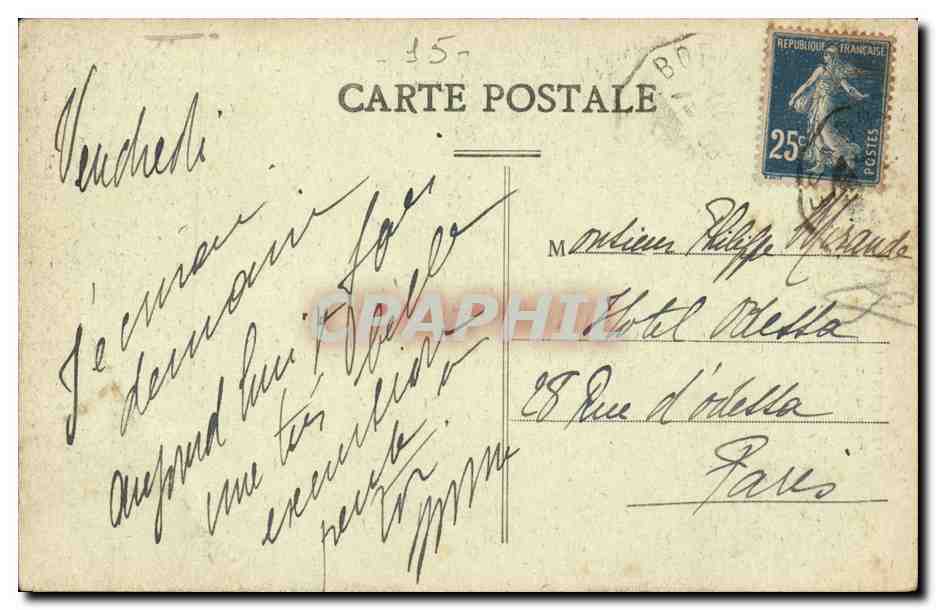 - 15 -
CARTE POSTALE
REPUBLIQUE FRANÇAISE
25c
POSTES
BO
Vendredi
demain
aujourd'hui j'ai
une très belle
excursion
Monsieur Philippe Mirande
Hotel Odessa
28 Rue d'odessa
Paris
CPAPHIL